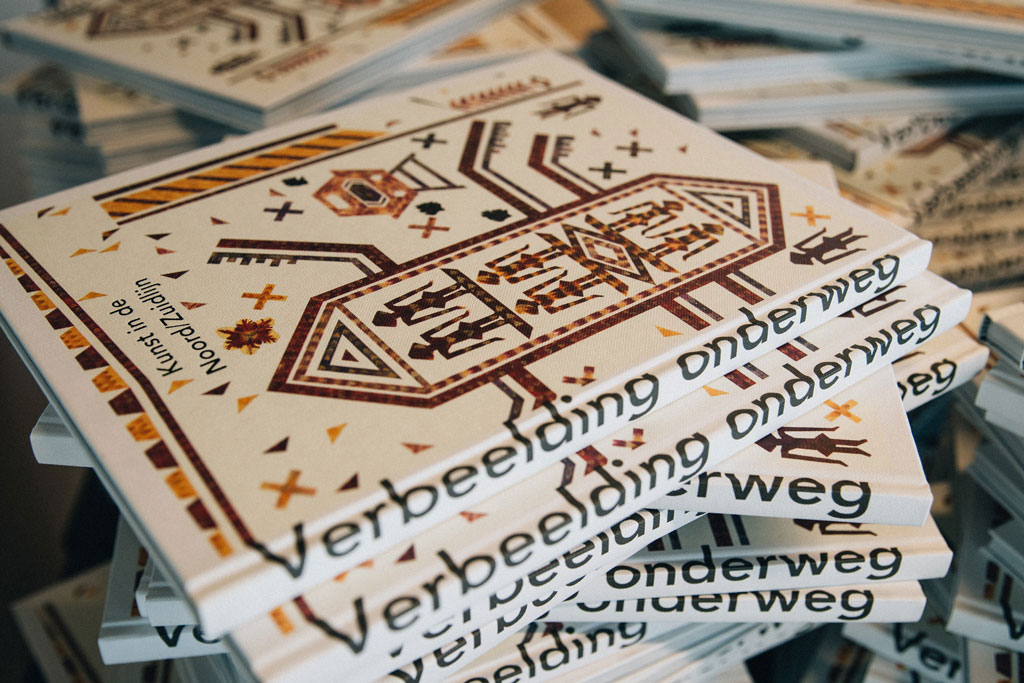 Kunst in de
Noord/Zuidlijn
Verbeelding onderweg
Verbeelding onderweg
onderweg
erweg
Verbeelding
onderweg
onderweg
beelding